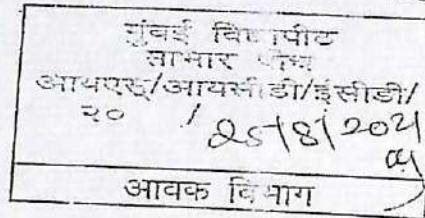 मुंबई विद्यापीठ
साभार पोच
आयएस/आयसीडी/ईसीडी/
२० / 25/8/2021
आवक विभाग